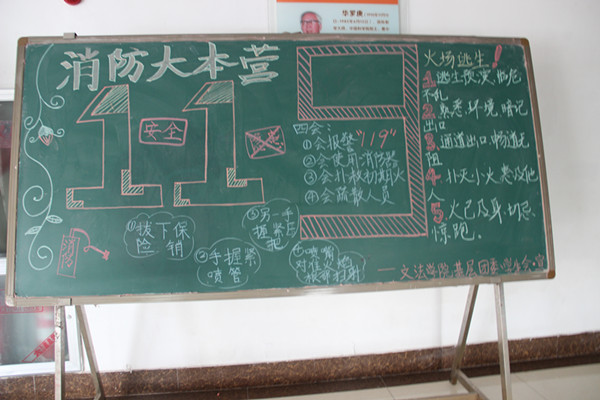 华罗庚
消防大本营
119
安全
四会:
①会报警"119"
②会使用消防器
③会扑救初期火
④会疏散人员
火场逃生!
1.逃生预演,临危
不乱
2.熟悉环境,暗记
出口
3.通道出口,畅通无
阻
4.扑灭小火,惠及他
人
5.火已及身,切忌
惊跑.
消防
①拔下保
险销
②手握紧
喷管
③另一手
握紧压
把
④喷嘴
对准火焰
根部扫射
——文法学院基层团委学生会·宣